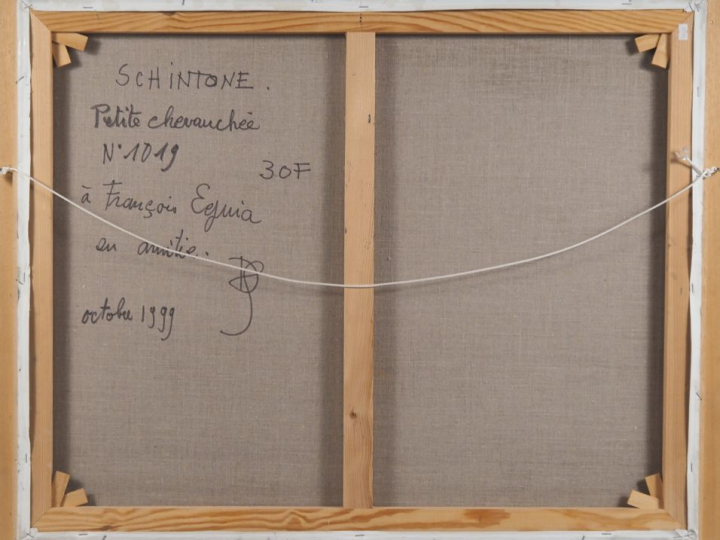 SCHINTONE.
Petite chevauchée
N° 1019
30F
à François Eguia
en amitié.
octobre 1999